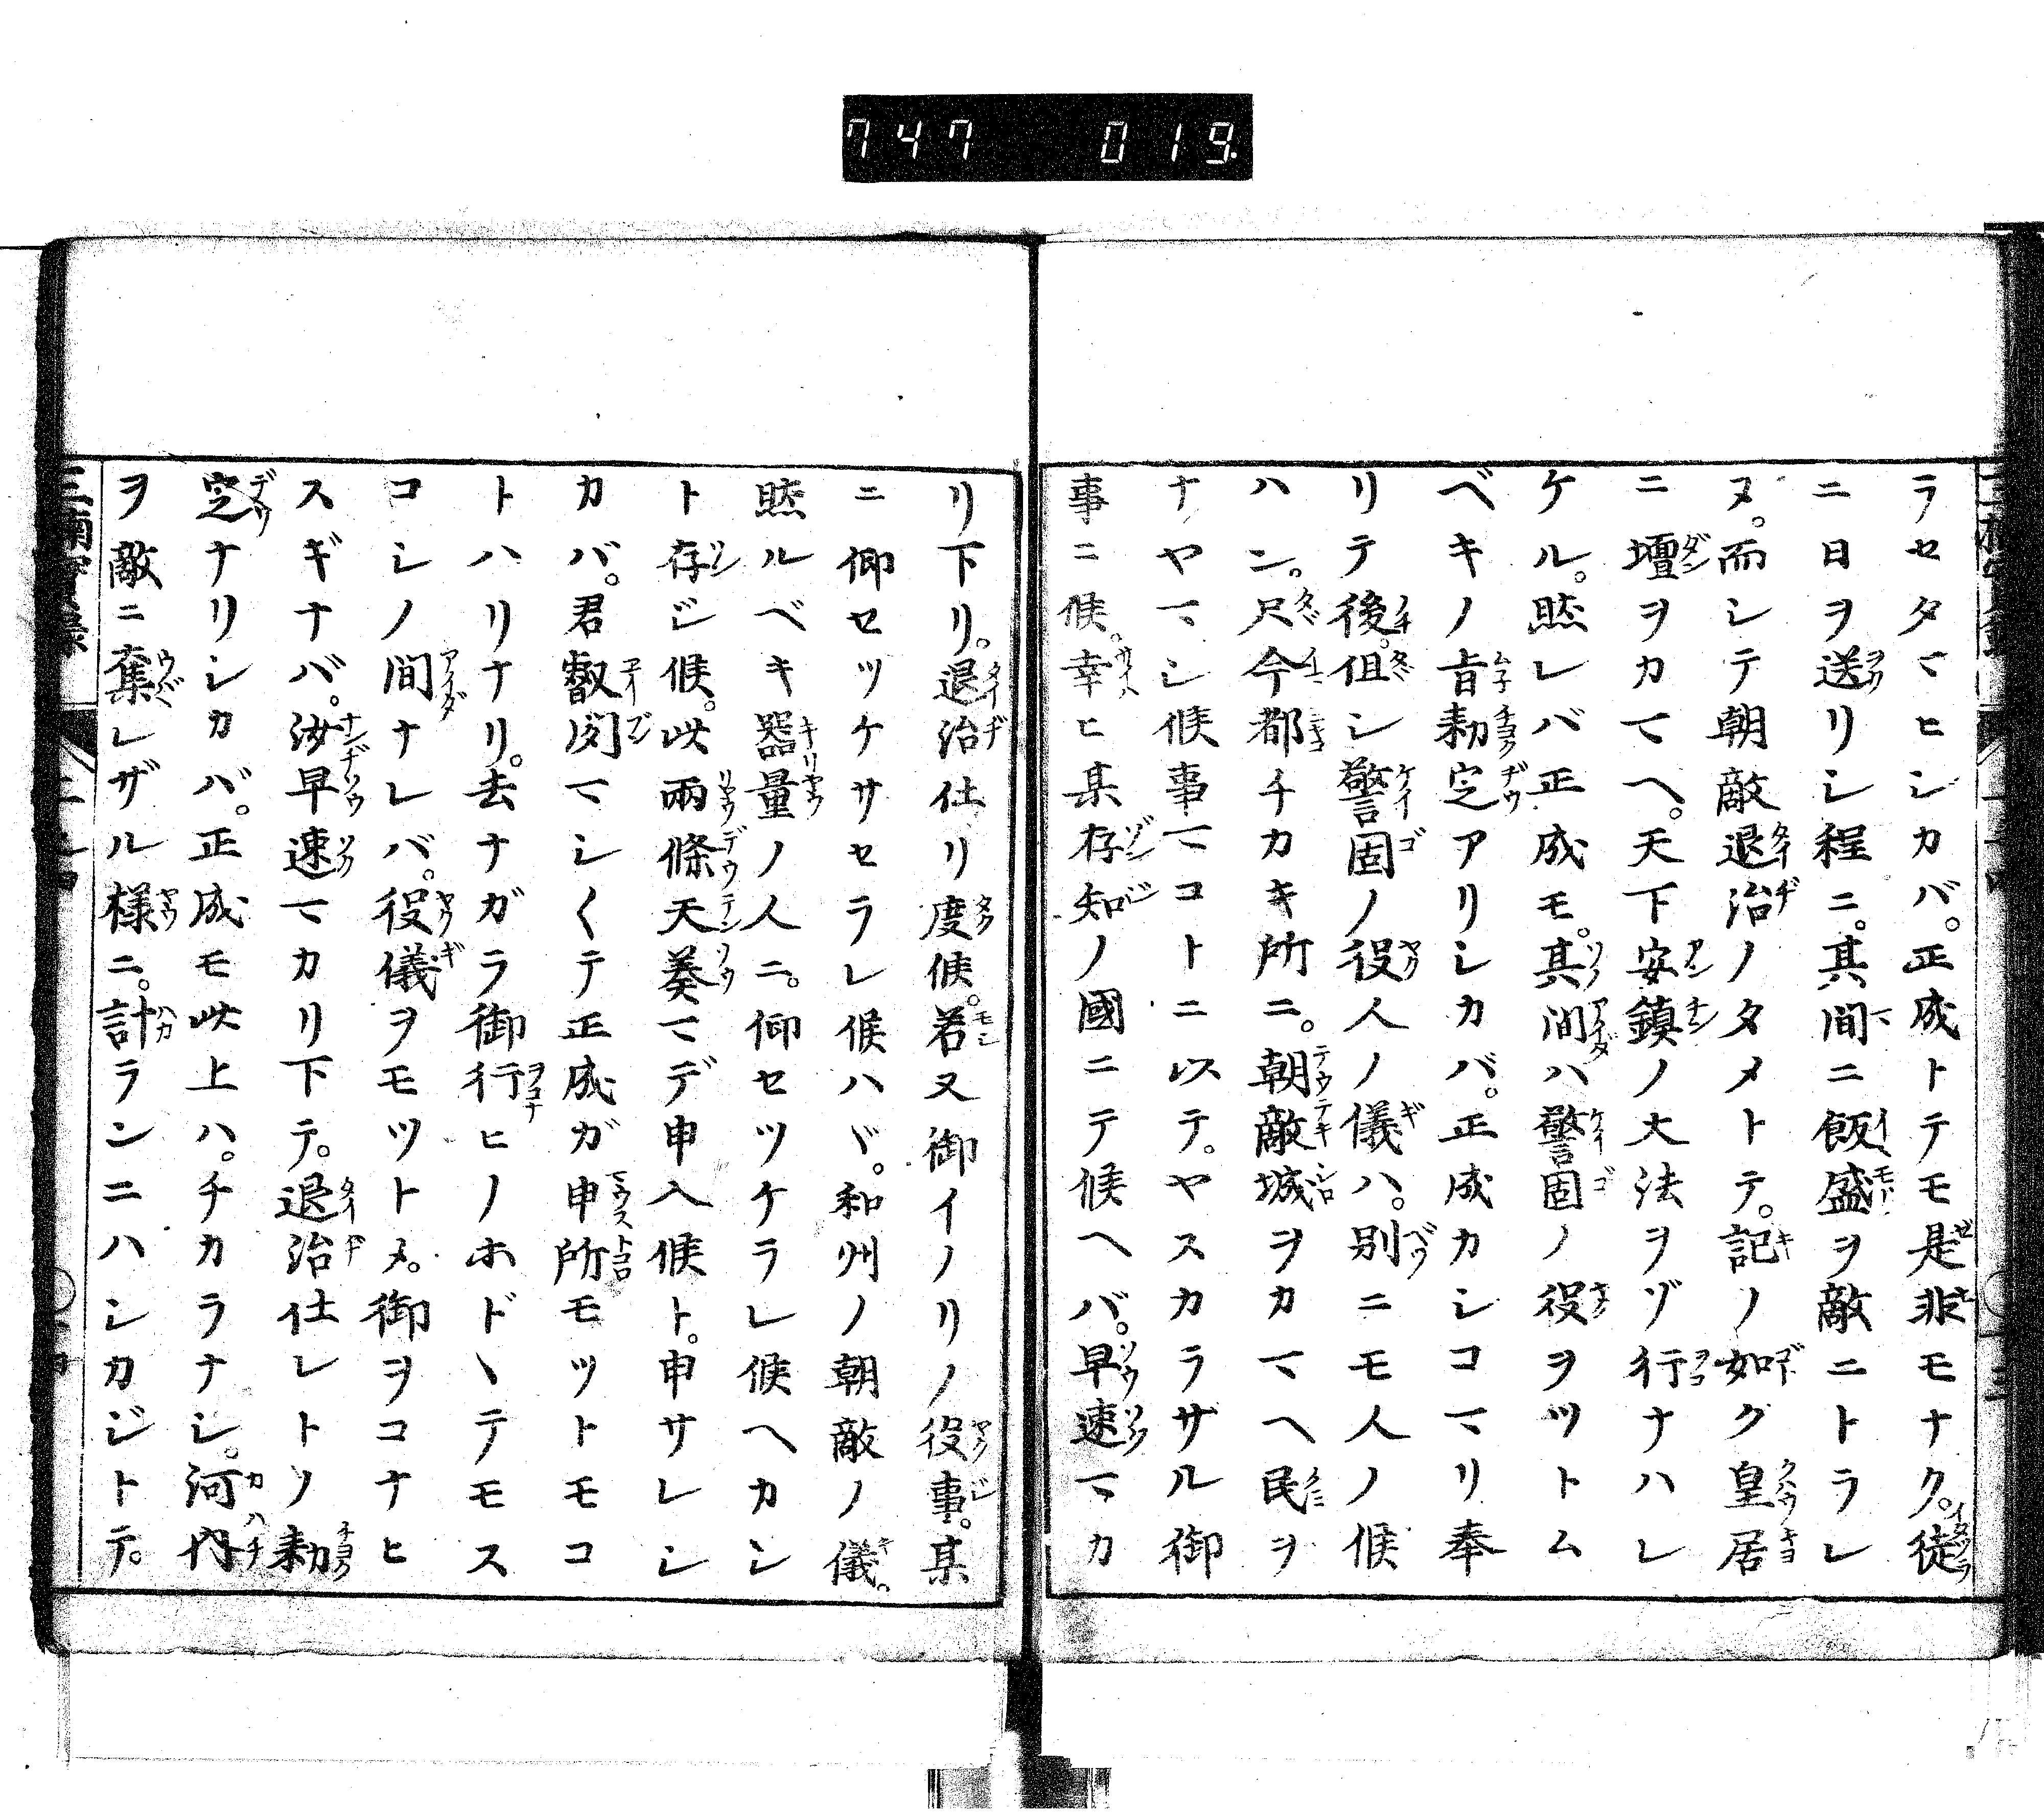 747 019.
ラセタマヒシカバ。正成トテモ是非モナク。徒
ニ日ヲ送リシ程ニ。其間ニ飯盛ヲ敵ニトラレ
ヌ。而シテ朝敵退治ノタメトテ。記ノ如ク皇居
ニ壇ヲカマヘ。天下安鎮ノ大法ヲゾ行ナハレ
ケル。然レバ正成モ。其間ハ警固ノ役ヲツトム
ベキノ旨勅定アリシカバ。正成カシコマリ奉
リテ後。伹シ警固ノ役人ノ儀ハ。別ニモ人ノ候
ハン。只今都チカキ所ニ。朝敵城ヲカマヘ民ヲ
ナヤマシ候事マコトニ以テ。ヤスカラサル御
事ニ候。幸ヒ某存知ノ國ニテ候ヘバ。早速マカ
リ下リ。退治仕リ度候。若又御イノリノ役事。某
ニ仰セツケサセラレ候ハヾ。和州ノ朝敵ノ儀。
然ルベキ器量ノ人ニ。仰セツケラレ候ヘカシ
ト存ジ候。此兩條天奏マデ申入候ト。申サレシ
カバ。君叡聞マシ〱テ正成ガ申所モツトモコ
トハリナリ。去ナガラ御行ヒノホド丶テモス
コシノ間ナレバ。役儀ヲモツトメ。御ヲコナヒ
スギナバ。汝早速マカリ下テ。退治仕レトノ勅
定ナリシカバ。正成モ此上ハ。チカラナシ。河内
ヲ敵ニ奪レザル様ニ。計ランニハシカジトテ。